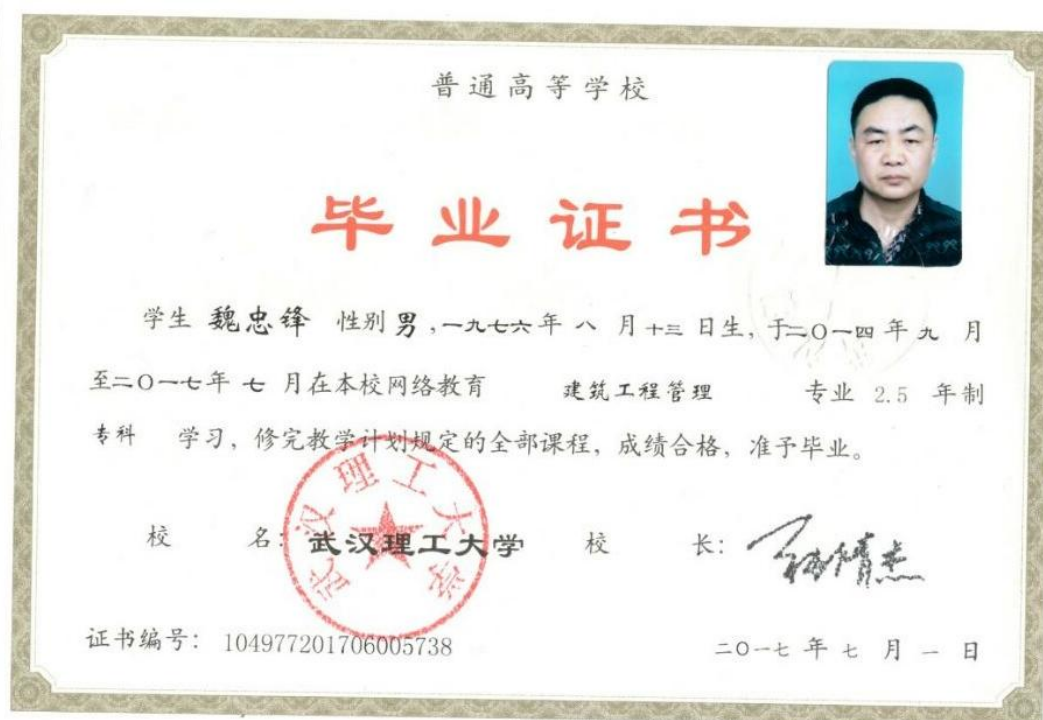 普通高等学校
毕业证书
学生 魏忠锋 性别 男，一九七六年 八 月 十三 日生，于二〇一四年 九 月
至二〇一七年 七 月在本校网络教育 建筑工程管理 专业 2.5 年制
专科 学习，修完教学计划规定的全部课程，成绩合格，准予毕业。
武汉理工大学
校 名：武汉理工大学 校 长：
证书编号：104977201706005738 二〇一七 年 七 月 一 日